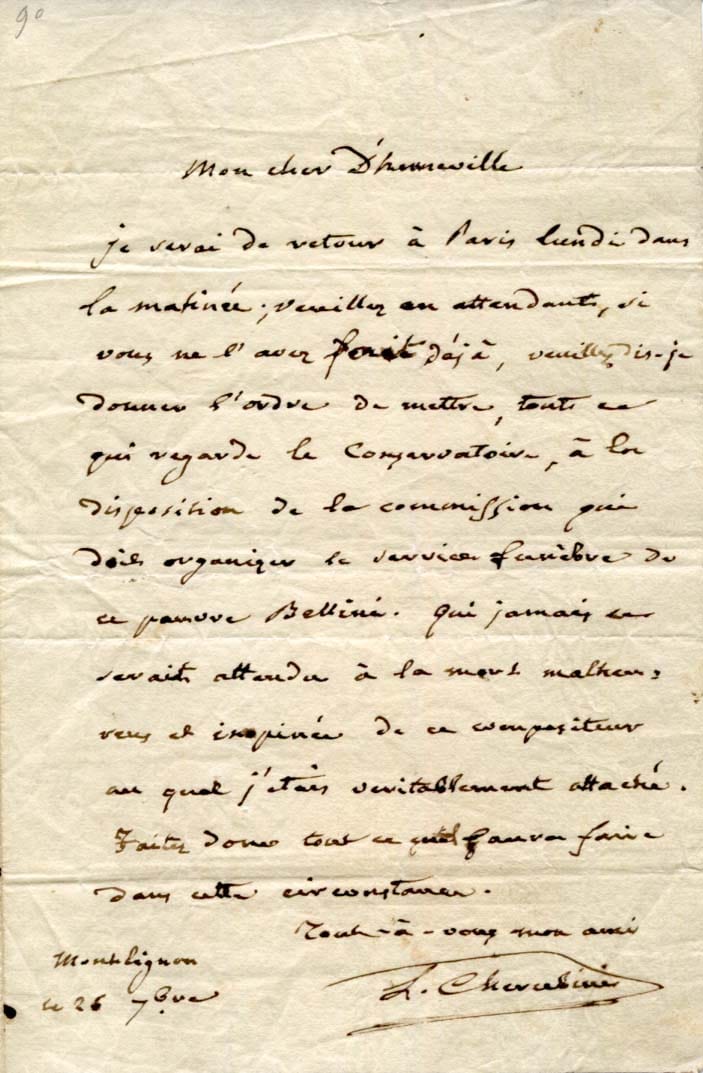 90
Mon cher D'henneville
je serai de retour à Paris lundi dans
la matinée; veuillez en attendant, si
vous ne l'avez fait déjà, veuillez, dis-je
donner l'ordre de mettre, tout ce
qui regarde le Conservatoire, à la
disposition de la commission qui
doit organiser le service funèbre de
ce pauvre Bellini. Qui jamais ce
serait attendu à la mort malheu=
reus et inopinée de ce compositeur
au quel j'étais veritablement attaché.
Faites donc tout ce faura faire
dans cette circonstance.
Tout-à-vous mon ami
L. Cherubini
Montlignon
le 26 7bre